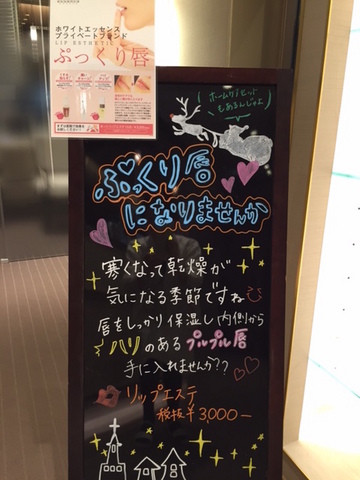 ホワイトエッセンス
プライベートブランド
LIP ESTHETIC
ぷっくり唇
ホームケアセット
もあるんじゃよ
ぷっくり唇
になりませんか
寒くなって乾燥が
気になる季節ですね
唇をしっかり保湿し内側から
ハリのあるプルプル唇
手に入れませんか??
リップエステ
税抜¥3,000-